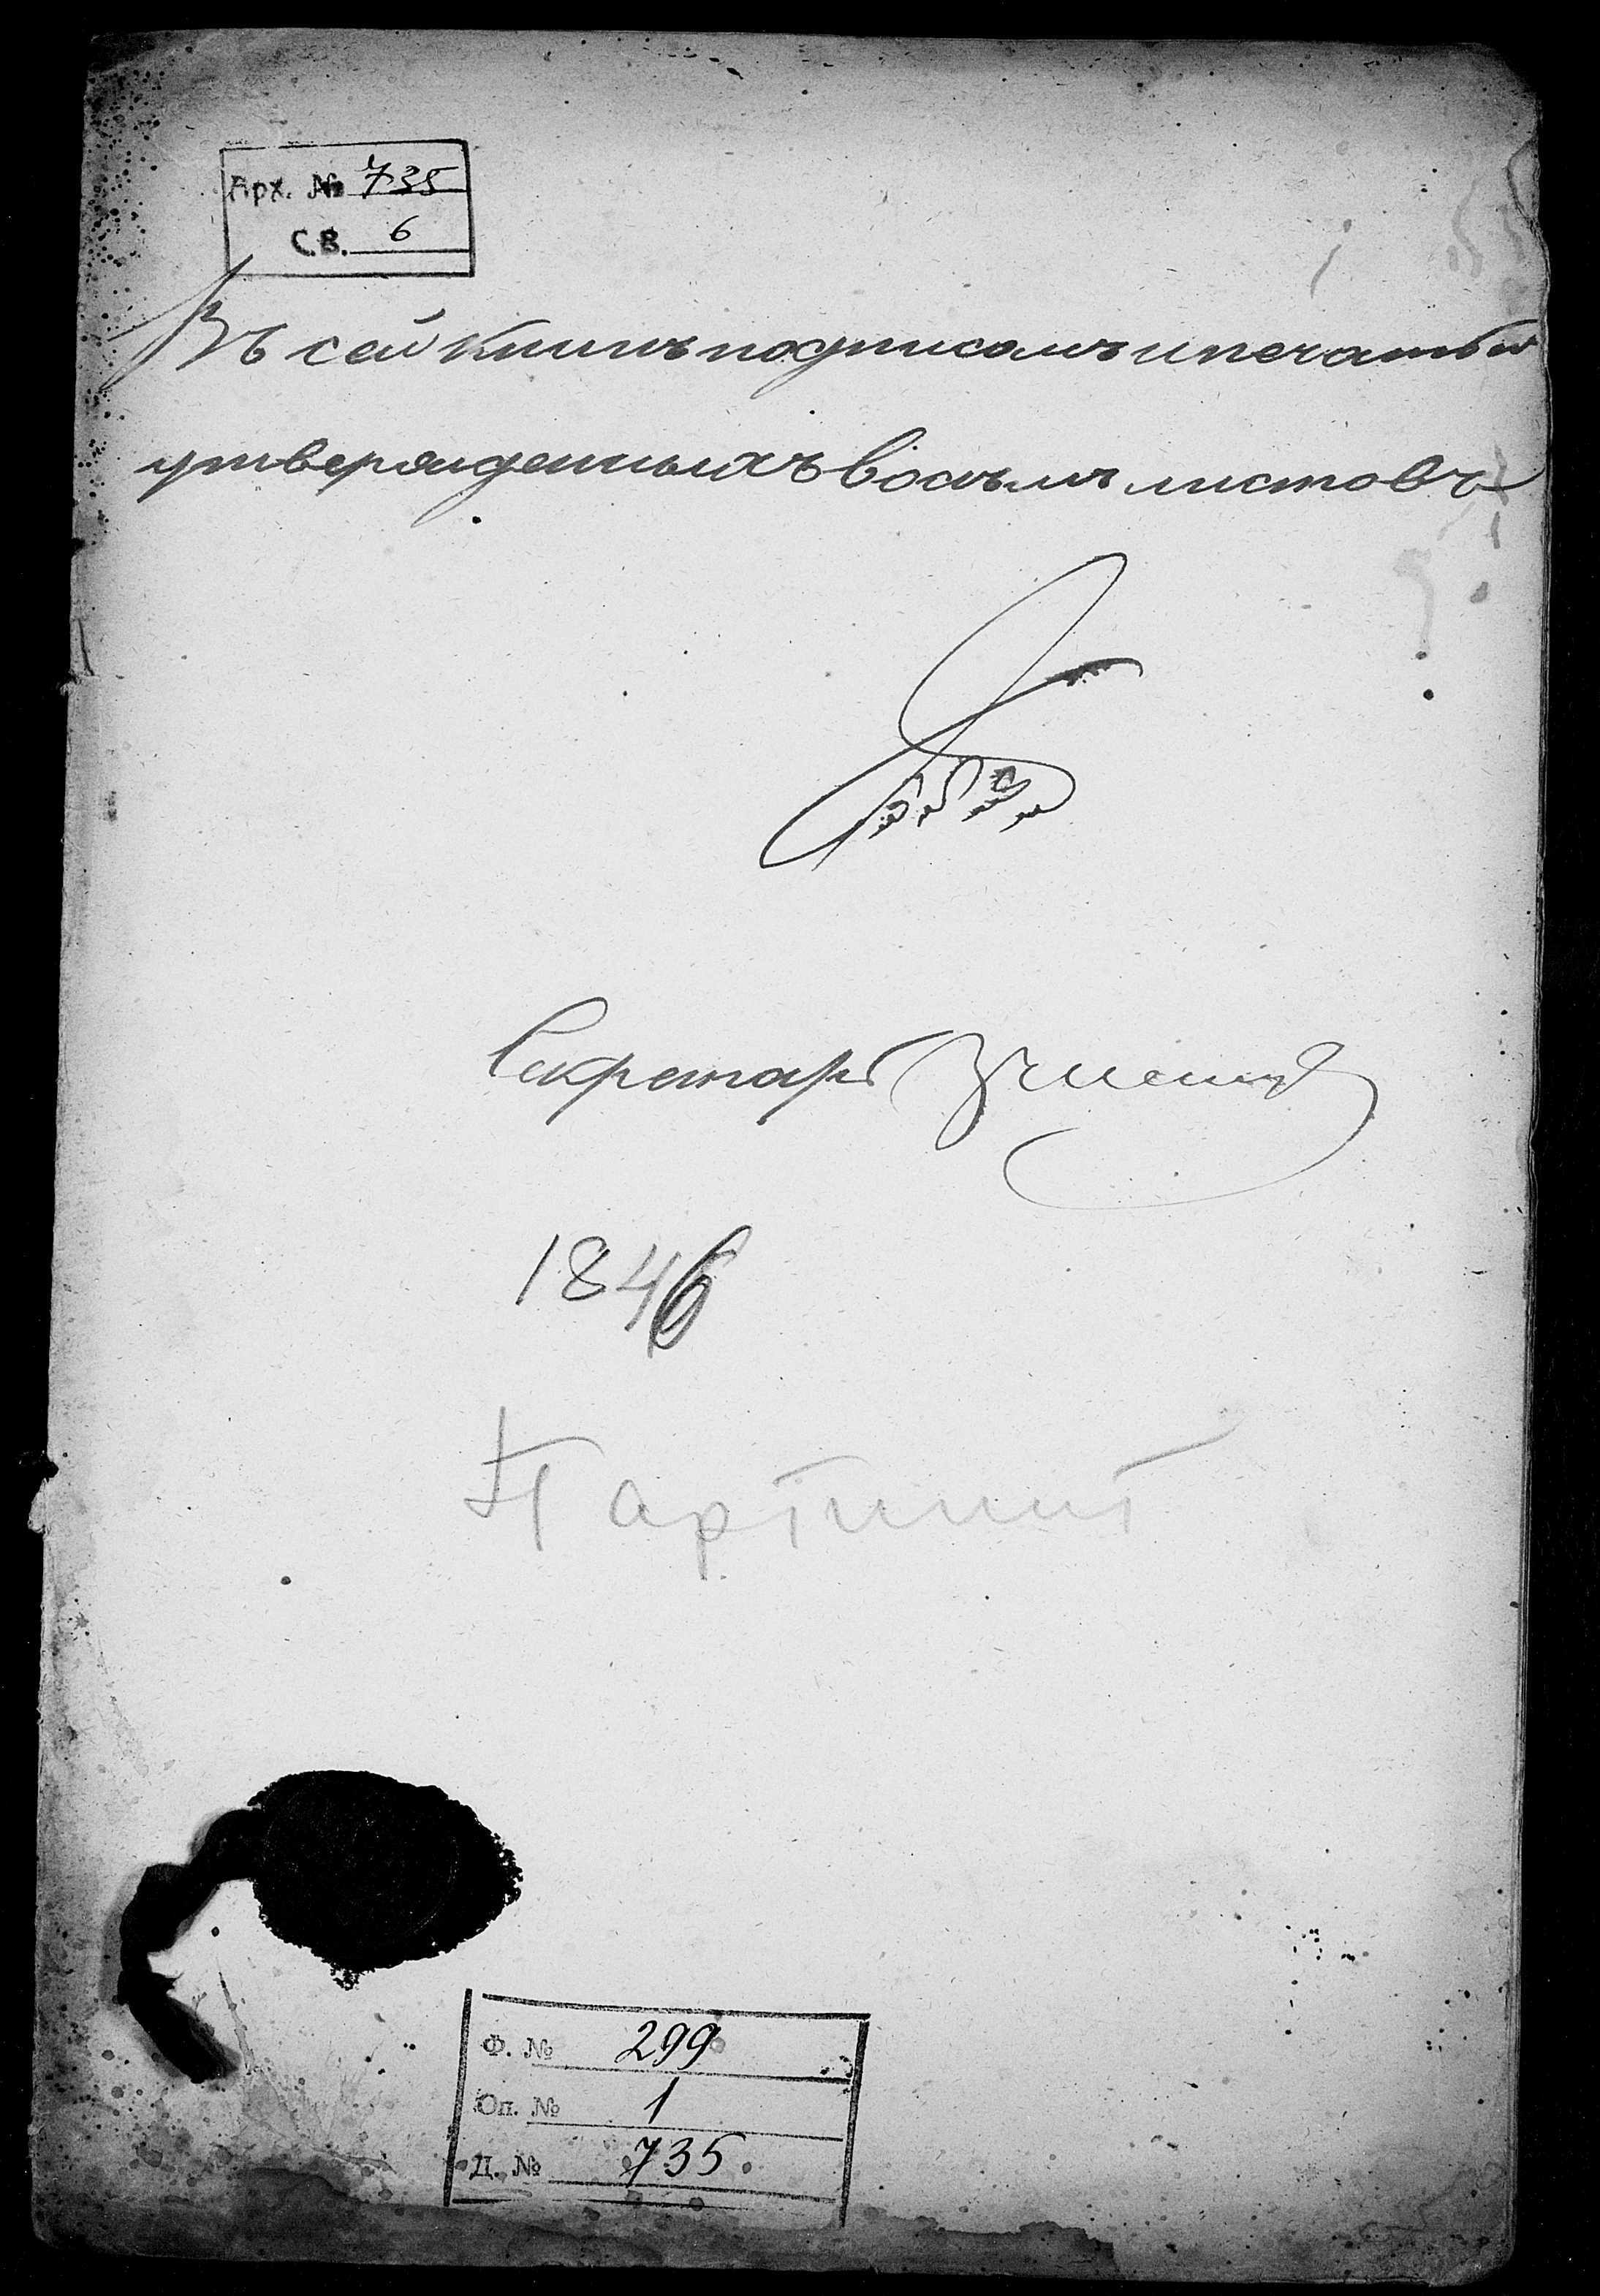 Арх. № 735
С.В. 6
Въ сей книгъ подписомъ и печатью
утвержденныхъ восъмъ листовъ
Секретарь
1846
Партинит
Ф. № 299
Оп. № 1
Д. № 735